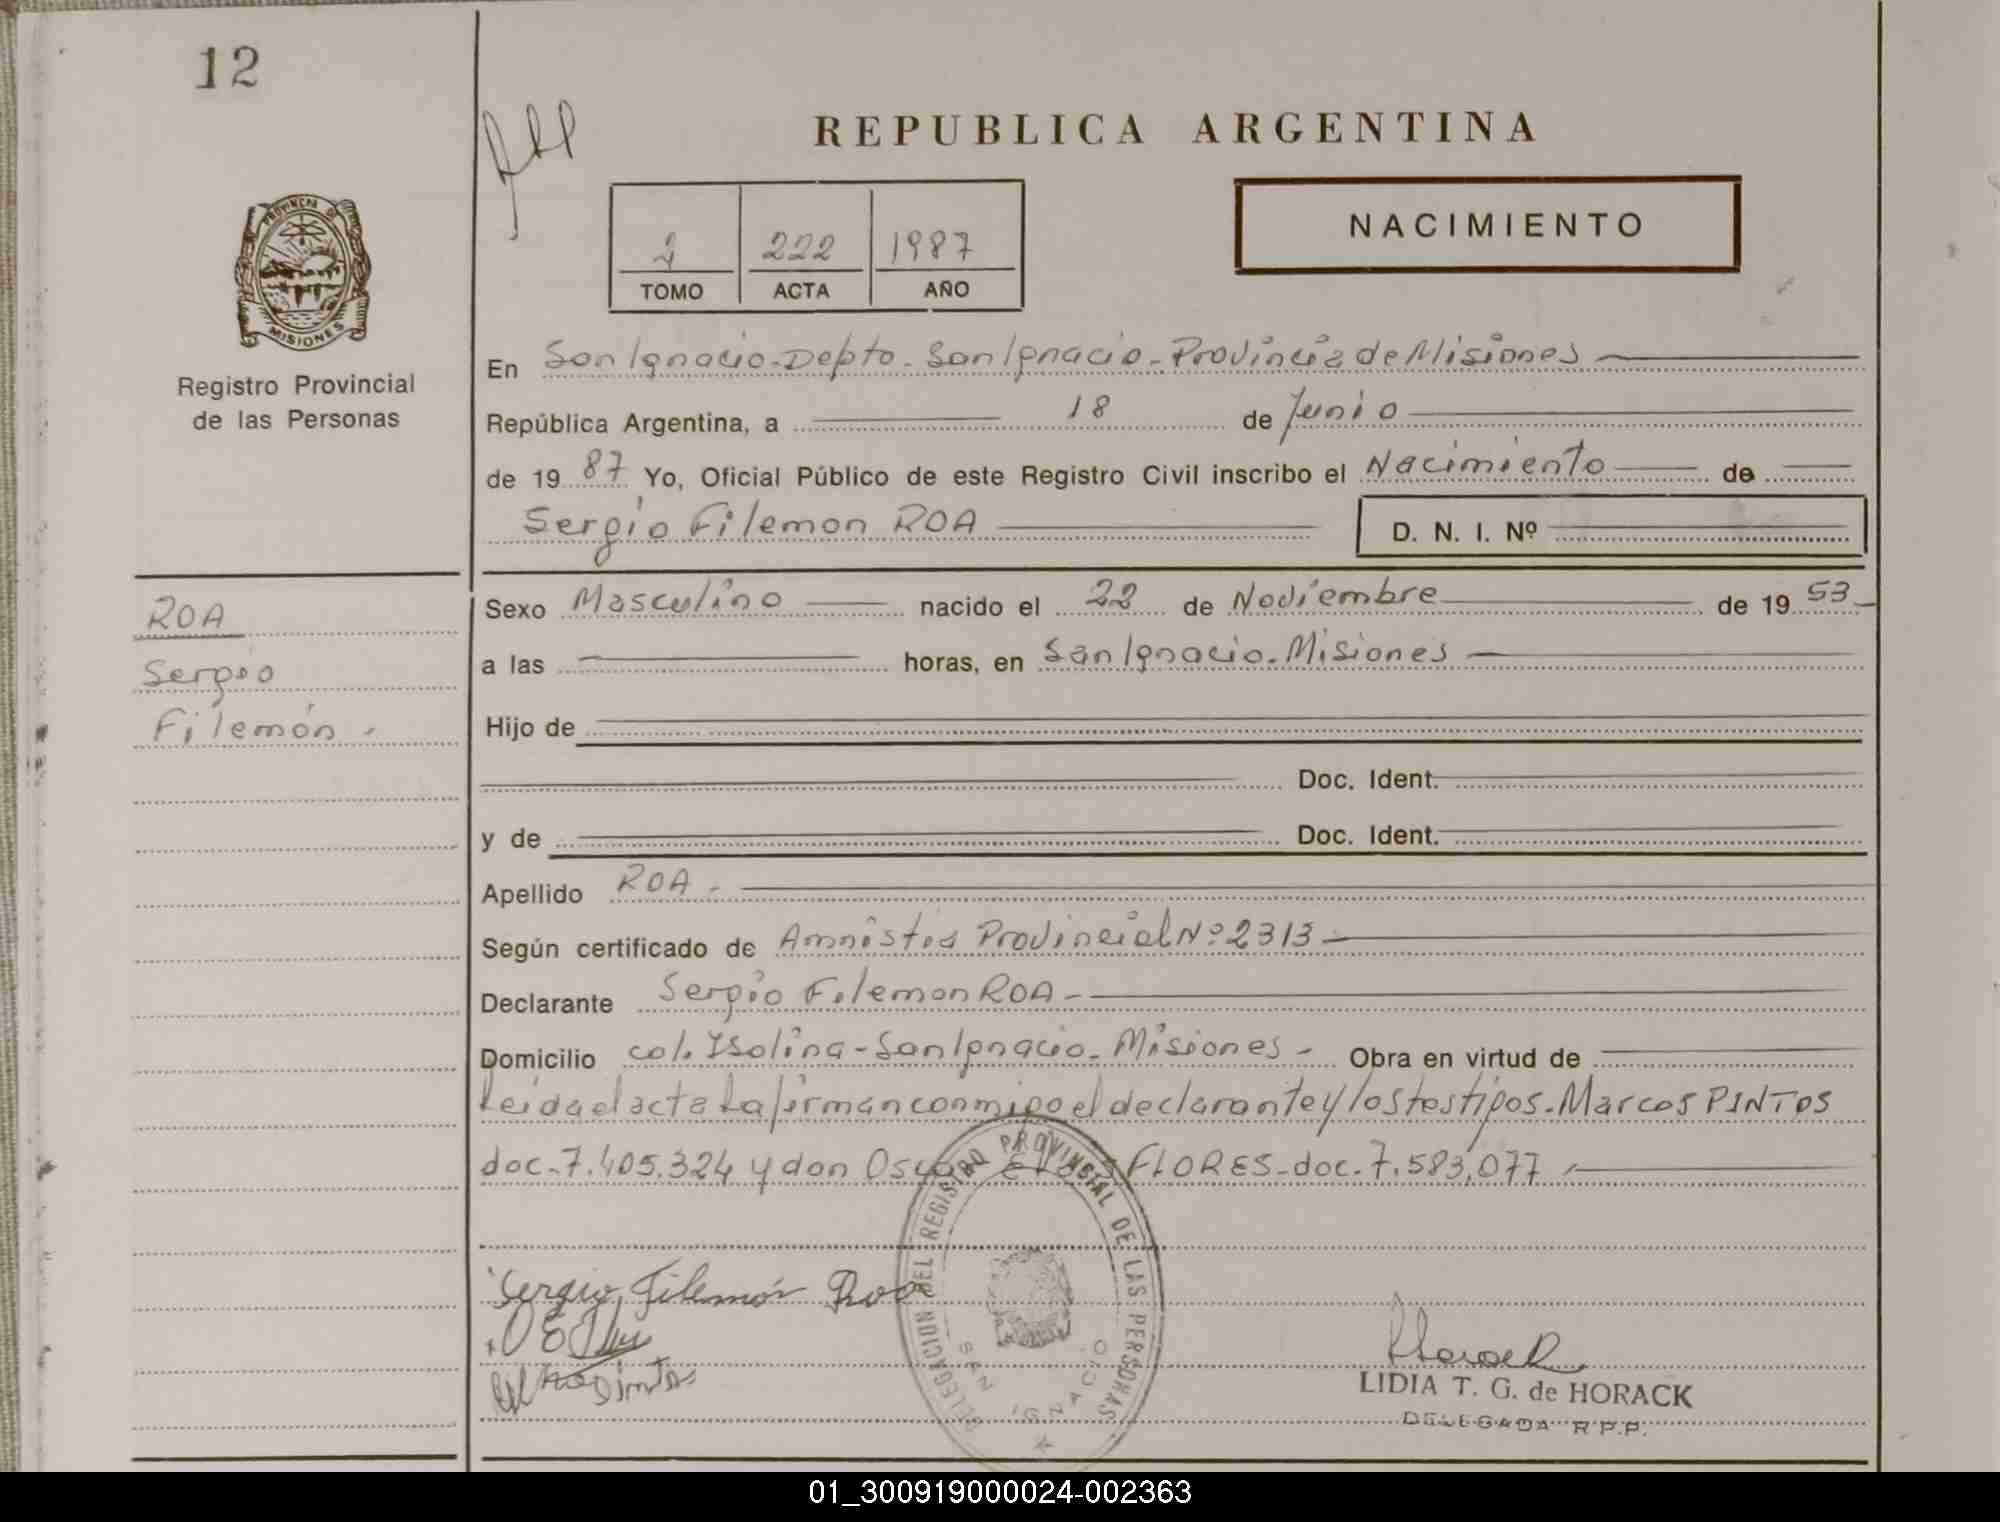 12
REPUBLICA ARGENTINA
NACIMIENTO
222 1987
TOMO ACTA AÑO
PROVINCIA DE
MISIONES
Registro Provincial
de las Personas
En San Ignacio-Depto. San Ignacio-Provincia de Misiones
República Argentina, a 18 de Junio
de 19 87 Yo, Oficial Público de este Registro Civil inscribo el Nacimiento de
Sergio Filemon ROA D. N. I. Nº
ROA
Sergio
Filemón.
Sexo Masculino nacido el 22 de Noviembre de 19 53
a las horas, en San Ignacio. Misiones
Hijo de
Doc. Ident.
y de Doc. Ident.
Apellido ROA.
Según certificado de Amnistia Provincial Nº 2313
Declarante Sergio Filemon ROA
Domicilio col. Isolina-San Ignacio. Misiones - Obra en virtud de
Leida el acta La firman conmigo el declarante y los testigos. Marcos PINTOS
doc. 7.405.324 y don Oscar FLORES-doc. 7.583.077
DELEGACION DEL REGISTRO PROVINCIAL DE LAS PERSONAS
SAN IGNACIO
Sergio Filemón Roa
Horack
LIDIA T. G. de HORACK
DELEGADA R.P.P.
01_300919000024-002363